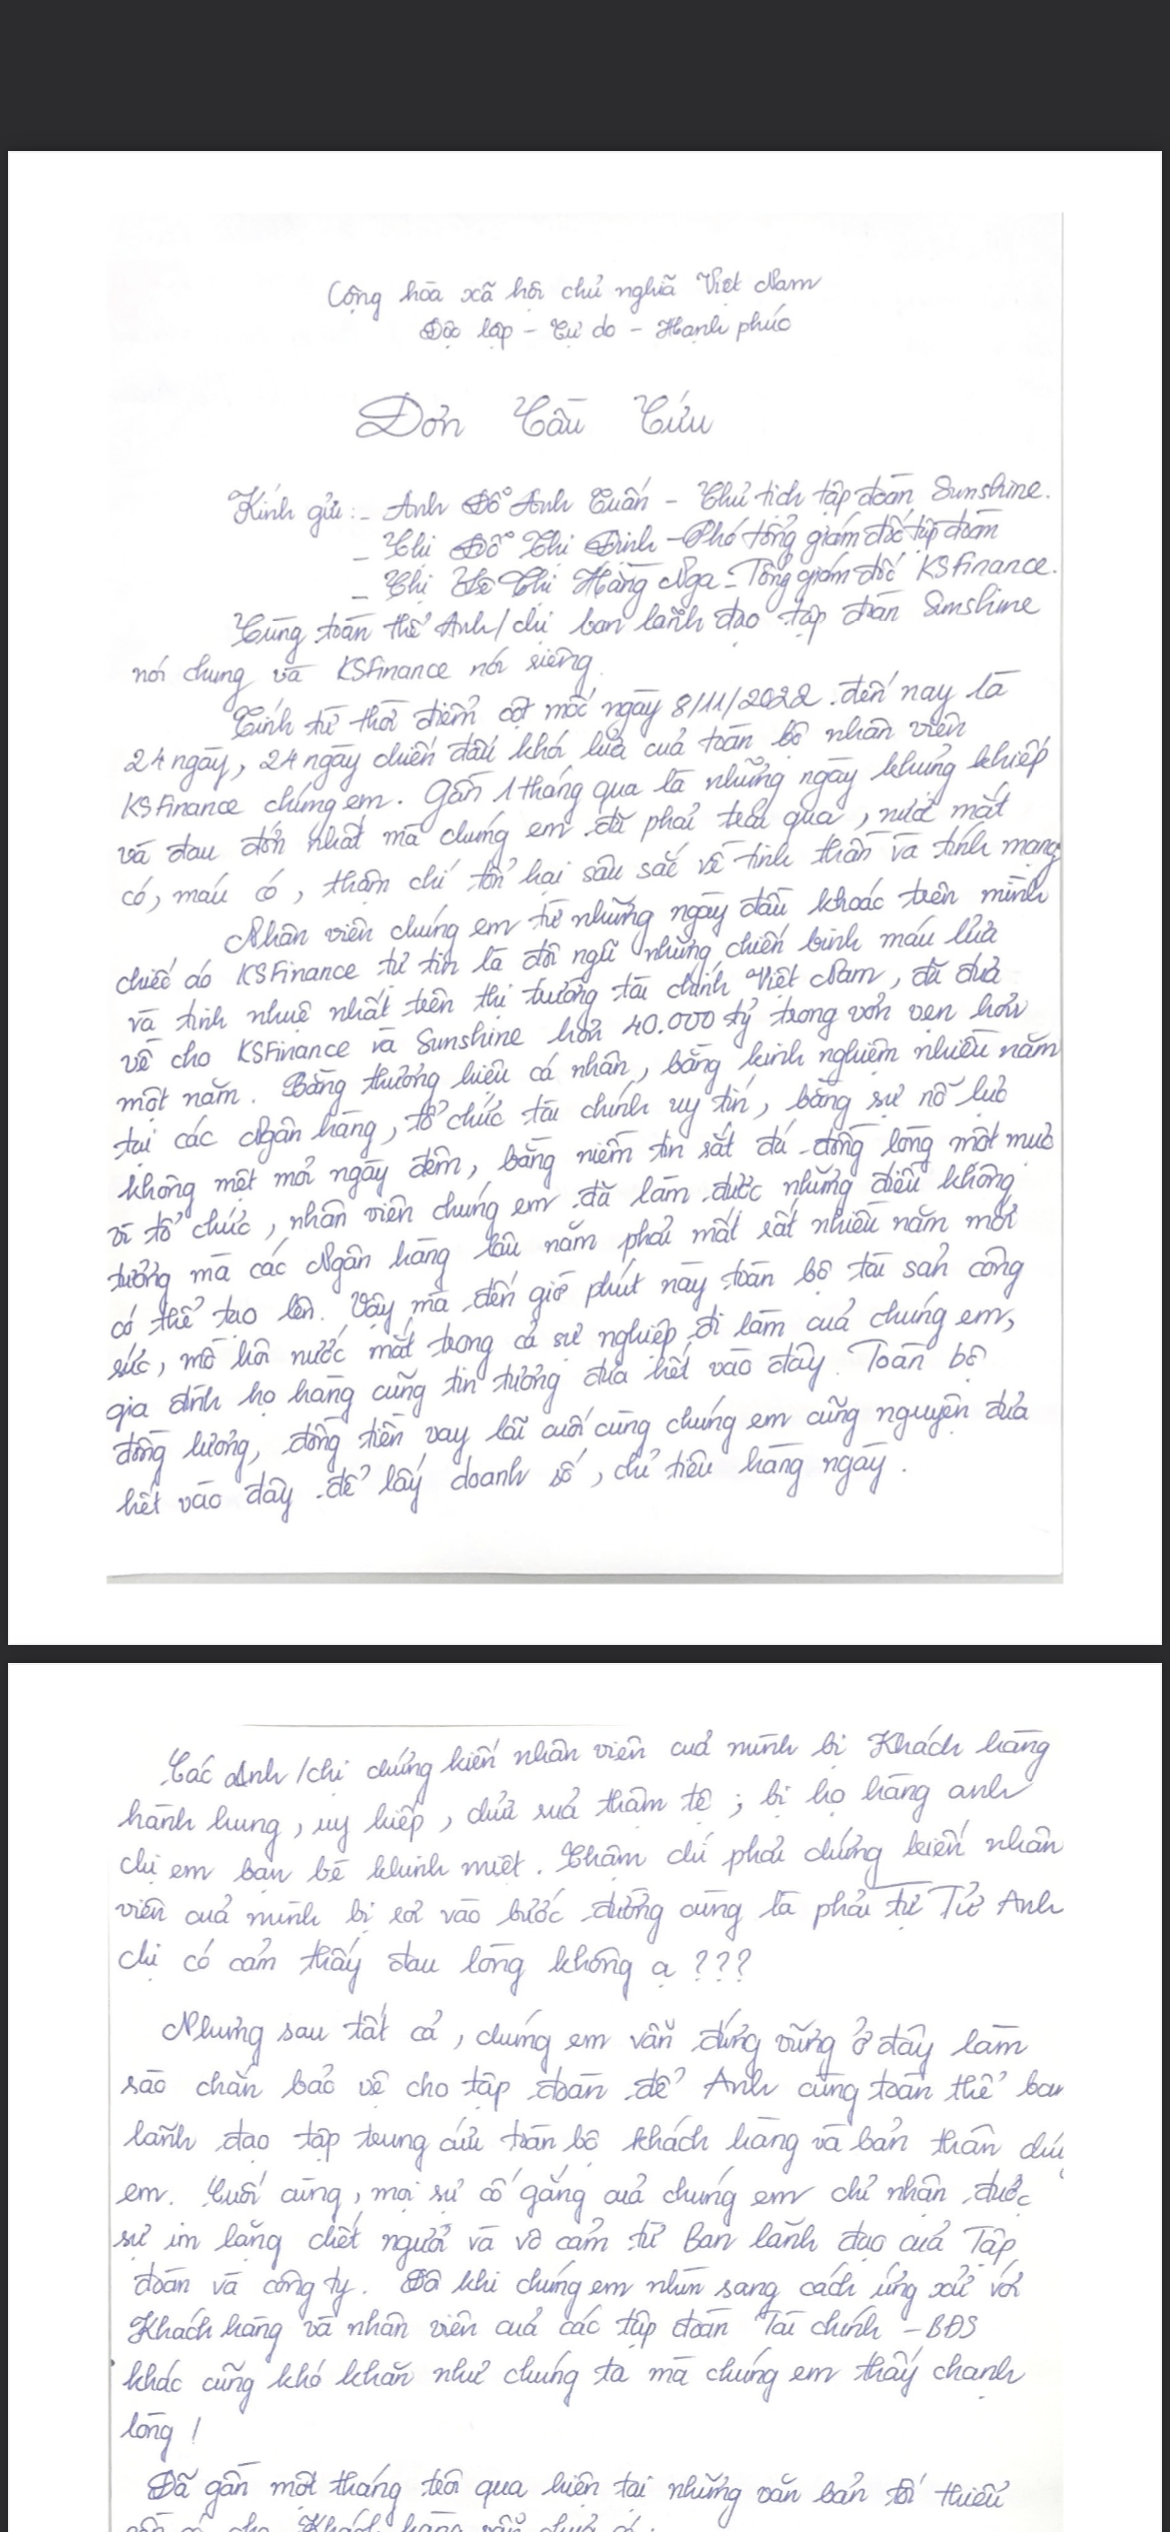 Cộng hòa xã hội chủ nghĩa Việt Nam
Độc lập - Tự do - Hạnh phúc
Đơn Cầu Cứu
Kính gửi: - Anh Đỗ Anh Tuấn - Chủ tịch tập đoàn Sunshine.
- Chị Đỗ Thị Định - Phó tổng giám đốc tập đoàn
- Chị Lê Thị Hằng Nga - Tổng giám đốc KSFinance.
Cùng toàn thể Anh/chị ban lãnh đạo tập đoàn Sunshine
nói chung và KSFinance nói riêng.
Tính từ thời điểm cột mốc ngày 8/11/2022 đến nay là
24 ngày, 24 ngày chiến đấu khói lửa của toàn bộ nhân viên
KSFinance chúng em. Gần 1 tháng qua là những ngày khủng khiếp
và đau đớn nhất mà chúng em đã phải trải qua, nước mắt
có, máu có, thậm chí tổn hại sâu sắc về tinh thần và tính mạng
Nhân viên chúng em từ những ngày đầu khoác trên mình
chiếc áo KSFinance tự tin là đội ngũ những chiến binh máu lửa
và tinh nhuệ nhất trên thị trường tài chính Việt Nam, đã đưa
về cho KSFinance và Sunshine hơn 40.000 tỷ trong vỏn vẹn hơn
một năm. Bằng thương hiệu cá nhân, bằng kinh nghiệm nhiều năm
tại các Ngân hàng, tổ chức tài chính uy tín, bằng sự nỗ lực
không mệt mỏi ngày đêm, bằng niềm tin sắt đá đồng lòng một mực
vì tổ chức, nhân viên chúng em đã làm được những điều không
tưởng mà các Ngân hàng lâu năm phải mất rất nhiều năm mới
có thể tạo lên. Vậy mà đến giờ phút này toàn bộ tài sản công
sức, mồ hôi nước mắt trong cả sự nghiệp đi làm của chúng em,
gia đình họ hàng cũng tin tưởng đưa hết vào đây. Toàn bộ
đồng lương, đồng tiền vay lãi cuối cùng chúng em cũng nguyện đưa
hết vào đây để lấy doanh số, chỉ tiêu hàng ngày.
Các Anh/chị chứng kiến nhân viên của mình bị Khách hàng
hành hung, uy hiếp, chửi rủa thậm tệ; bị họ hàng anh
chị em bạn bè khinh miệt. Thậm chí phải chứng kiến nhân
viên của mình bị rơi vào bước đường cùng là phải tự Tử Anh
chị có cảm thấy đau lòng không ạ ???
Nhưng sau tất cả, chúng em vẫn đứng vững ở đây làm
rào chắn bảo vệ cho tập đoàn để Anh cùng toàn thể ban
lãnh đạo tập trung cứu toàn bộ khách hàng và bản thân
em. Cuối cùng, mọi sự cố gắng của chúng em chỉ nhận được
sự im lặng chết người và vô cảm từ Ban lãnh đạo của Tập
đoàn và công ty. Đã khi chúng em nhìn sang cách ứng xử với
Khách hàng và nhân viên của các tập đoàn Tài chính - BĐS
khác cũng khó khăn như chúng ta mà chúng em thấy chạnh
lòng !
Đã gần một tháng trôi qua hiện tại những văn bản tối thiểu